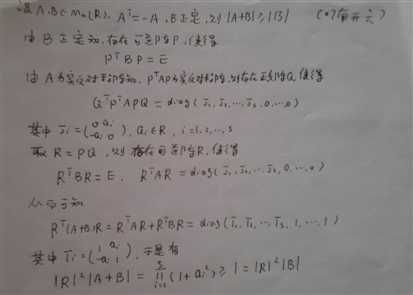 设 A,B∈Mn(R), Aᵀ=-A, B正定, 则 |A+B|≥|B|
由 B 正定知, 存在可逆阵P, 使得
PᵀBP=E
由 A为实反对称阵知, PᵀAP为实反对称阵, 则存在正交阵Q, 使得
QᵀPᵀAPQ = diag(J₁,J₂,…,Jₛ,0,…,0)
其中 Jᵢ=(0 aᵢ; -aᵢ 0), aᵢ∈R, i=1,2,…,s
取 R=PQ, 则存在可逆阵R, 使得
RᵀBR=E, RᵀAR=diag(J₁,J₂,…,Jₛ,0,…,0)
从而可知
Rᵀ(A+B)R=RᵀAR+RᵀBR=diag(T₁,T₂,…,Tₛ,1,…,1)
其中 Tᵢ=(1 aᵢ; -aᵢ 1), 于是有
|R|²|A+B|=∏ᵢ₌₁ˢ(1+aᵢ²)≥1=|R|²|B|